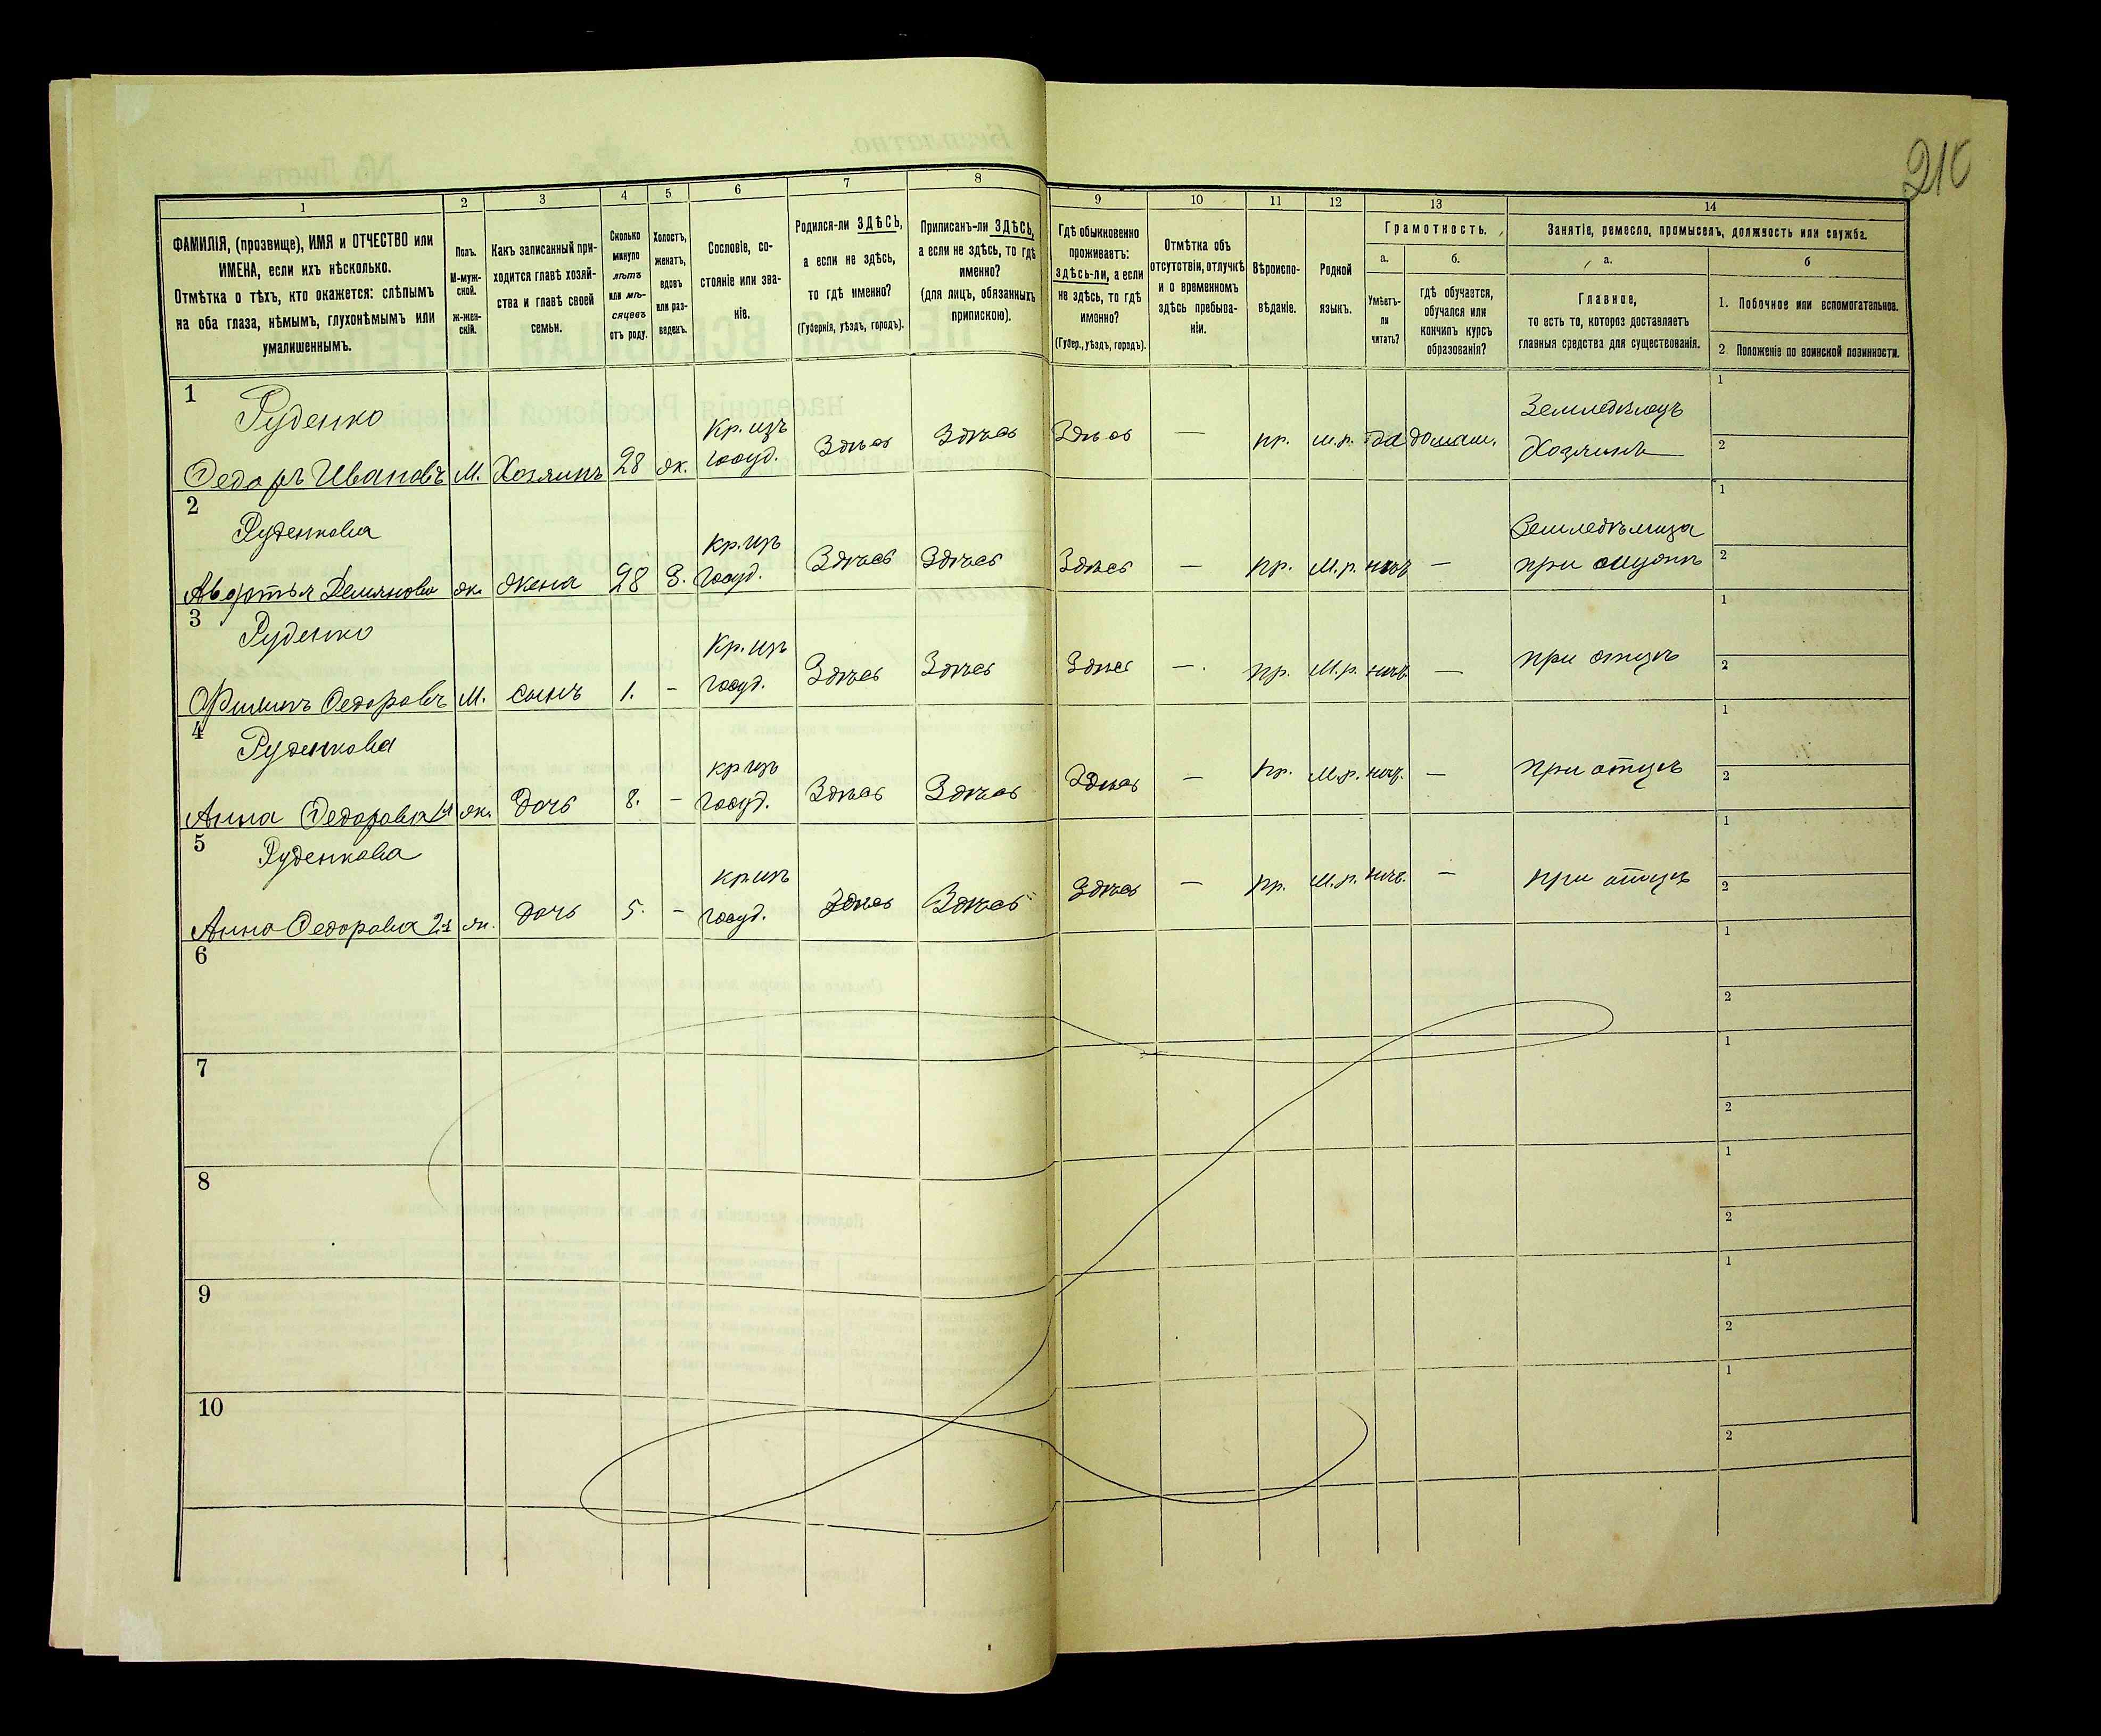 210
1 2 3 4 5 6 7 8 9 10 11 12 13 14
ФАМИЛІЯ, (прозвище), ИМЯ и ОТЧЕСТВО или
ИМЕНА, если ихъ нѣсколько.
Отмѣтка о тѣхъ, кто окажется: слѣпымъ
на оба глаза, нѣмымъ, глухонѣмымъ или
умалишеннымъ.
Полъ.
М-муж-
ской.
ж-жен-
скій.
Какъ записанный при-
ходится главѣ хозяй-
ства и главѣ своей
семьи.
Сколько
минуло
лѣтъ
или мѣ-
сяцевъ
отъ роду.
Холостъ,
женатъ,
вдовъ
или раз-
веденъ.
Сословіе, со-
стояніе или зва-
ніе.
Родился-ли ЗДѢСЬ,
а если не здѣсь,
то гдѣ именно?
(Губернія, уѣздъ, городъ).
Приписанъ-ли ЗДѢСЬ,
а если не здѣсь, то гдѣ
именно?
(для лицъ, обязанныхъ
припискою).
Гдѣ обыкновенно
проживаетъ:
здѣсь-ли, а если
не здѣсь, то гдѣ
именно?
(Губер., уѣздъ, городъ).
Отмѣтка объ
отсутствіи, отлучкѣ
и о временномъ
здѣсь пребыва-
ніи.
Вѣроиспо-
вѣданіе.
Родной
языкъ.
Грамотность.
а.
Умѣетъ-
ли
читать?
б.
гдѣ обучается,
обучался или
кончилъ курсъ
образованія?
Занятіе, ремесло, промыселъ, должность или служба.
а.
Главное,
то есть то, которое доставляетъ
главныя средства для существованія.
б
1. Побочное или вспомогательное.
2. Положеніе по воинской повинности.
1
Руденко
Федоръ Ивановъ М. Хозяинъ 28 ж. Кр. изъ
госуд. Здѣсь Здѣсь Здѣсь — пр. м.р. да домаш. Земледѣлецъ
Хозяинъ
1
2
2
Руденкова
Авдотья Демьянова ж. Жена 28 З. Кр. изъ
госуд. Здѣсь Здѣсь Здѣсь — пр. М.р. нѣтъ — Земледѣлица
при мужѣ
1
2
3
Руденко
Филипъ Федоровъ М. сынъ 1. - Кр. изъ
госуд. Здѣсь Здѣсь Здѣсь —. пр. М.р. нѣтъ — при отцѣ
1
2
4
Руденкова
Анна Федорова 1я ж. Дочь 8. - кр изъ
госуд. Здѣсь Здѣсь Здѣсь — пр. М.р. нѣт. — при отцѣ
1
2
5
Руденкова
Анна Федорова 2я ж. дочь 5. - кр изъ
госуд. Здѣсь Здѣсь Здѣсь — пр. М.р. нѣт. — при отцѣ
1
2
6
1
2
7
1
2
8
1
2
9
1
2
10
1
2